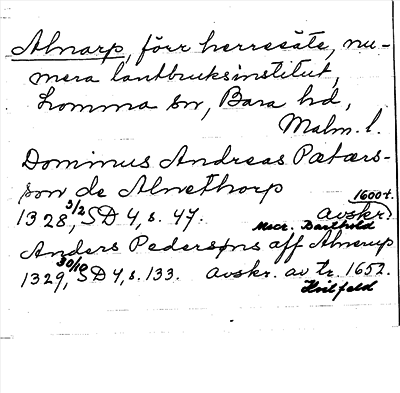 Alnarp, förr herresäte, nu-
mera lantbruksinstitut,
Lomma sn, Bara hd,
Malm. l.
Dominus Andreas Pætærs-
son de Alnethorp
1600-t.
1328 3/2 SD 4, s. 47. avskr.
Mscr. Barthold
Anders Pedersøns aff Alnerup
1329, 30/10 SD 4, s. 133. avskr. av tr. 1652.
Hvitfeld